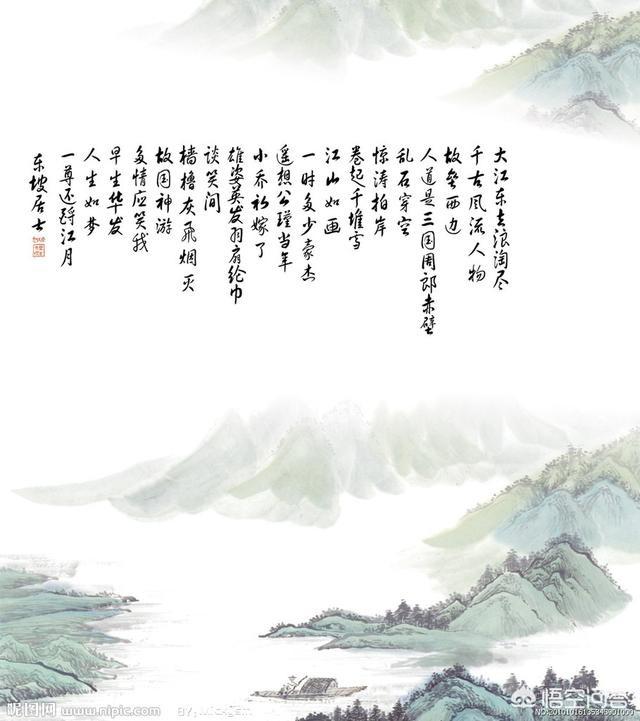 大江东去浪淘尽
千古风流人物
故垒西边
人道是三国周郎赤壁
乱石穿空
惊涛拍岸
卷起千堆雪
江山如画
一时多少豪杰
遥想公瑾当年
小乔初嫁了
雄姿英发羽扇纶巾
谈笑间
樯橹灰飞烟灭
故国神游
多情应笑我
早生华发
人生如梦
一尊还酹江月
东坡居士
昵图网 www.nipic.com
BY:
悟空问答